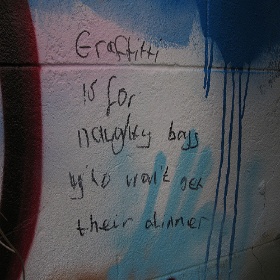 Graffitti
is for
naughty boys
who won't get
their dinner